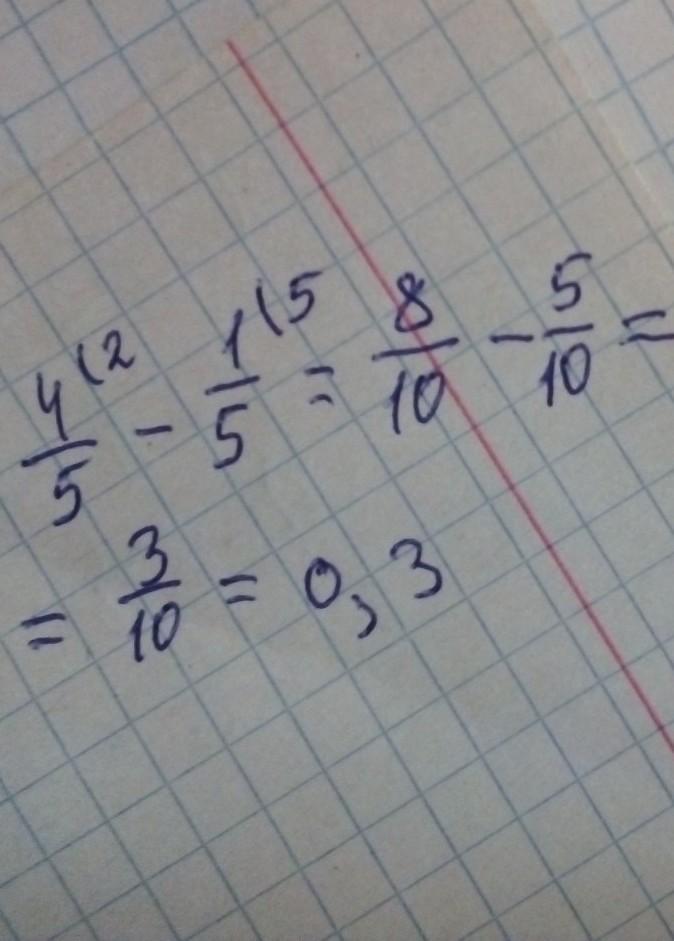 4/5 (2 - 1/5 (5 = 8/10 - 5/10 =
= 3/10 = 0,3